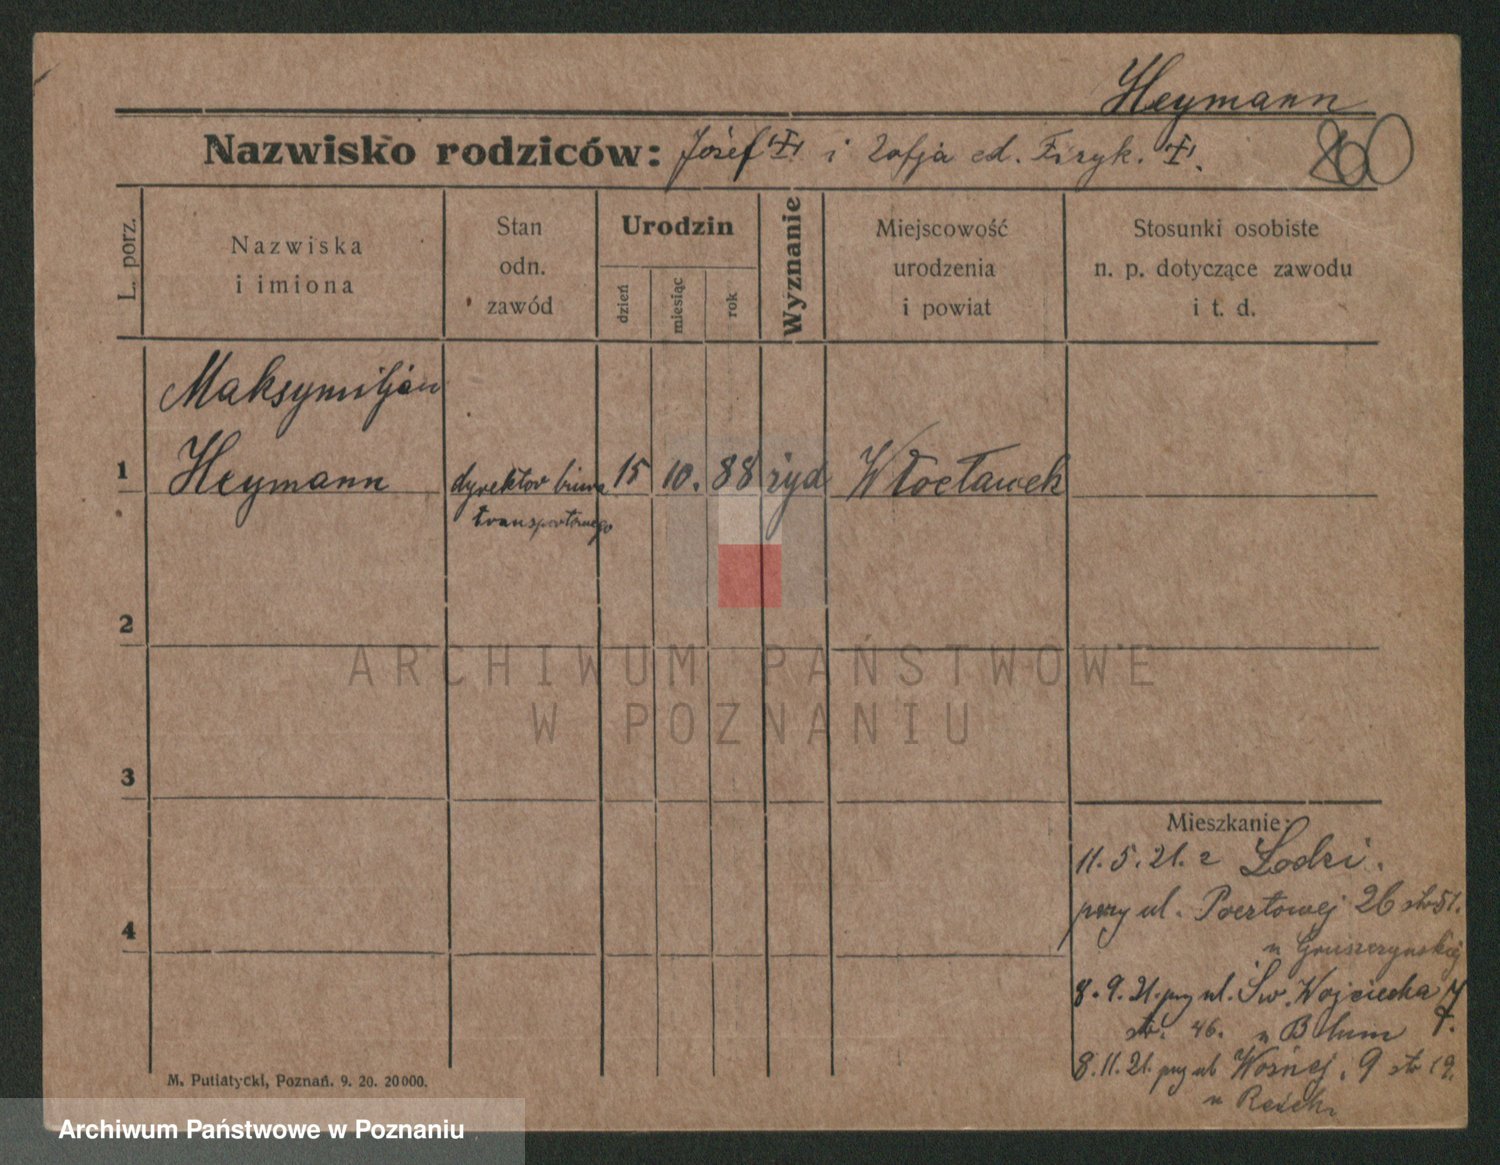 Heymann
Nazwisko rodziców: Józef i Zofja
80
L. porz.
Nazwiska
i imiona
Stan
odn.
zawód
Urodzin
dzień
miesiąc
rok
Wyznanie
Miejscowość
urodzenia
i powiat
Stosunki osobiste
n. p. dotyczące zawodu
i t. d.
Maksymiljan
1 Heymann dyrektor biura 15 10. 88 żyd Włocławek
transportowego
2
ARCHIWUM PAŃSTWOWE
W POZNANIU
3
Mieszkanie:
11. 5. 21. z Łodzi.
przy ul. Pocztowej 26 str 51.
4
u Gruszczyńskiej
8. 9. 21. przy ul. Św. Wojciecha
str. 46. u Blum
8. 11. 21. przy ul Woźnej. 9 str 19.
u
M. Putiatycki, Poznań. 9. 20. 20000.
Archiwum Państwowe w Poznaniu